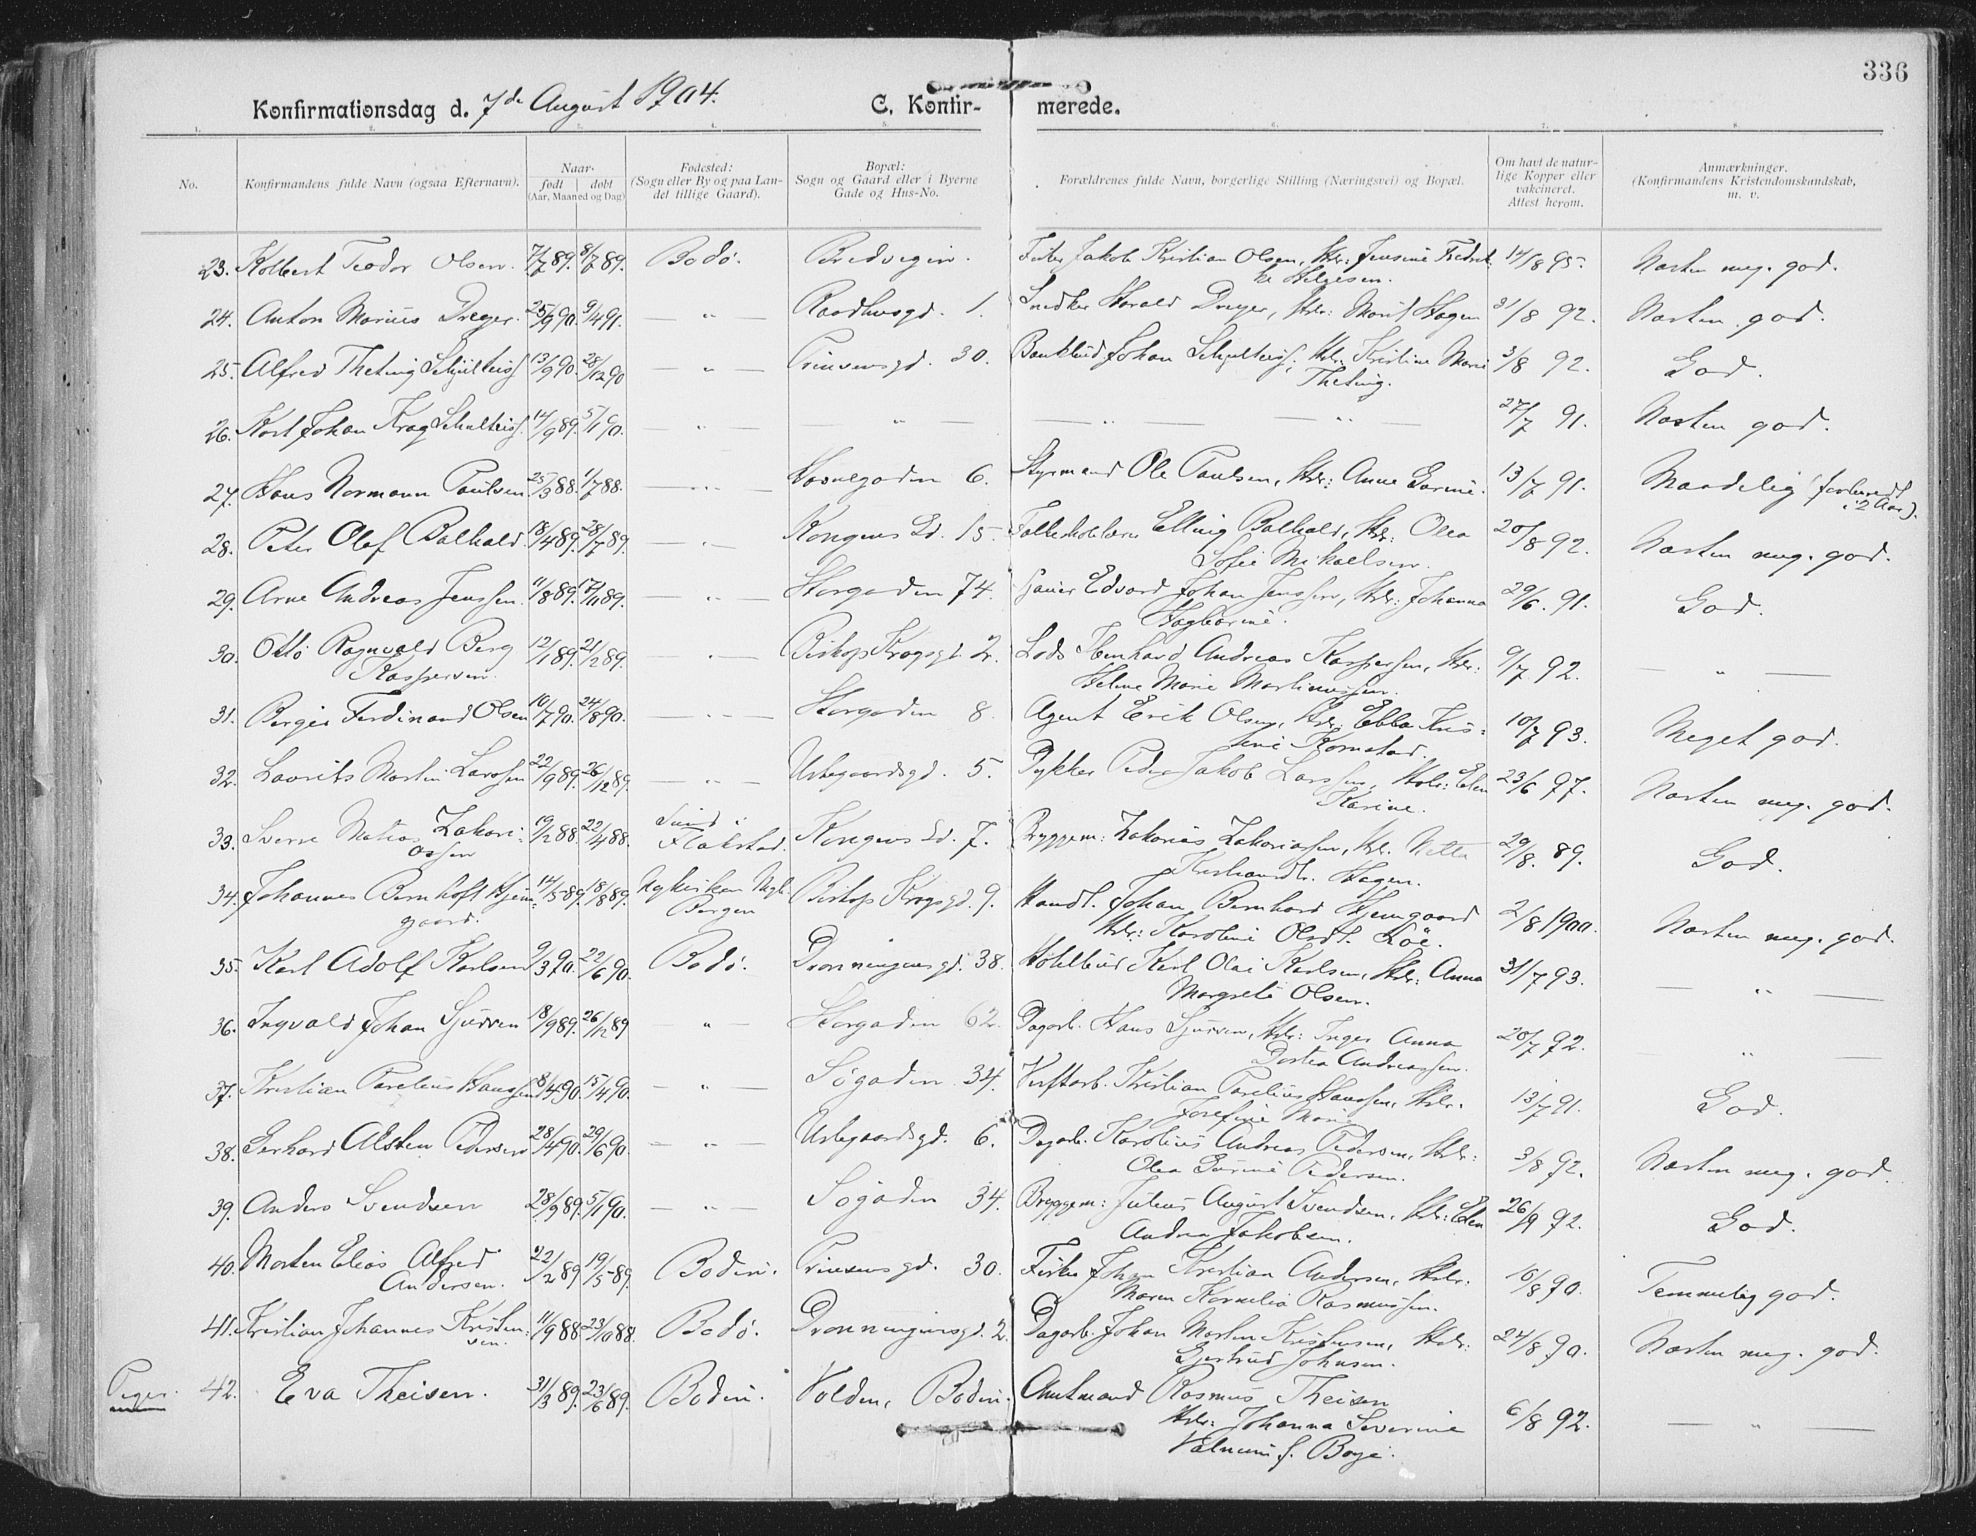 336
Konfirmationsdag d. 7de August 1904. C. Konfir- merede.
1. 2. 3. 4. 5. 6. 7. 8.
No. Konfirmandens fulde Navn (ogsaa Efternavn). Naar- født døbt (Aar, Maaned og Dag) Fødested: (Sogn eller By og paa Lan- det tillige Gaard). Bopæl: Sogn og Gaard eller i Byerne Gade og Hus-No. Forældrenes fulde Navn, borgerlige Stilling (Næringsvei) og Bopæl. Om havt de natur- lige Kopper eller vakcineret. Attest herom. Anmærkninger. (Konfirmandens Kristendomskundskab, m. v.
23. Kolbert Teodor Olsen. 7/7 89. 8/7 89. Bodø. Bredvegin. Fisker Jakob Kristian Olsen, Hstr: Jensine Fredrik- 14/8 95. Næsten meg. god.
ke Helgesen.
24. Anton Marius Dreyer. 25/9 90. 9/4 91. — " — Raadhusgd. 1. Snedker Harald Dreyer, Hstr: Marit Hagen 31/8 92. Næsten god.
25. Alfred Theting Schjulteiss 13/9 90. 28/12 90 — " — Prinsensgd. 30. Bankbud Johan Schulteiss, Hstr. Kristine Marie 3/8 92. God.
Theting.
26. Kort Johan Krag Schulteiss. 14/9 89. 5/1 90. — " — " — " — " — 27/7 91. Næsten god.
27. Hans Normann Paulsen 25/3 88. 1/7 88. — " — Havnegaden 6. Styrmand Ole Paulsen, Hstr: Anne Garine. 13/7 91. Maadelig (forberedt
i 2 Aar).
28. Peter Olaf Balhald. 18/4 89. 28/7 89. — " — Kongens Gd. 15. Folkeskolelærer Elling Balhald, Hstr: Olea 20/8 92. Næsten meg. god.
Sofie Mikaelsen.
29. Arne Andreas Jenssen. 11/8 89. 17/11 89. — " — Storgaden 74. Edvard Johan Jenssen, Hstr: Johanna 29/6. 91. God.
Hagbarine.
30. Otto Ragnvald Berg 12/1 89. 21/2 89. — " — Biskop Kragsgd. 2. Lods Ebenhard Andreas Kaspersen, Hstr: 9/7 92. — " —
Kaspersen. Helene Marie Martinussen.
31. Birger Ferdinand Olsen 10/7 90. 24/8 90. — " — Storgaden 8. Agent Erik Olsen, Hstr. Ebba Kris- 10/7 93. Meget god.
tine Kornstad.
32. Laurits Morten Larssen 22/9 89. 26/12 89. — " — Urbegaardsgd. 5. Dykker Peder Jakob Larssen, Hstr: Elen 23/6 97. Næsten meg. god.
Karine.
33. Sverre Matias Zakari- 19/2 88. 22/4 88. Sund i Kongens Gd. 7. Bryggem: Zakarias Zakariassen, Hstr. Netta 29/8. 89. God.
assen Flakstad. Kristiansdtr. Hagen.
34. Johannes Bernhoft Hjem- 14/5 89. 18/8 89. Nykirken Mgh. Biskop Kragsgd. 9. Handl. Johan Bernhard Hjemgaard 2/8 1900. Næsten meg. god.
gaard. Bergen Hstr: Karoline Olsdt. Løe.
35. Karl Adolf Karlsen 9/3 90. 22/6 90. Bodø. Dronningensgd. 38. Karl Olai Karlsen, Hstr: Anna 31/7 93. — " —
Margrete Olsen.
36. Ingvald Johan Sjursen 18/9 89. 26/12 89 " — Storgaden 62. Dagarb. Hans Sjursen, Hstr: Inger Anna 20/7 92. "
Dortea Andreassen.
37. Kristian Parelius Hanssen 8/4 90. 15/4 90. — " — Søgaden 34. Verftarb. Kristian Parelius Hanssen, Hstr. 13/7 91. God.
Josefine Marie
38. Gerhard Alsten Pedersen 28/4 90. 29/6 90. — " — Urbegaardsgd. 6. Dagarb. Karolius Andreas Pedersen, Hstr: 3/8 92. Næsten meg. god.
Olea Gurine Pedersen.
39. Anders Svendsen 28/9 89. 5/1 90. — " — Søgaden 34. Bryggem: Julius August Svendsen, Hstr: Elen 26/9 92. God.
Andrea Jakobsen.
40. Morten Elias Alfred 22/2 89 19/5 89. Bodin. Prinsensgd. 30. Fisker Johan Kristian Andersen, Hstr: 10/8 90. Temmelig god.
Andersen. Maren Kornelia Rasmussen.
41. Kristian Johannes Kristen- 11/9 88 23/10 88. Bodø. Dronningensgd. 2. Dagarb. Johan Morten Kristensen, Hstr: 24/8 90. Næsten meg. god.
sen. Gjertrud Johnsen.
Piger. 42. Eva Theisen. 31/3 89. 23/6 89. Bodin. Volden, Bodin. Amtmand Rasmus Theisen 6/8 92. — " —
Hstr: Johanna Severine
f. Boye.